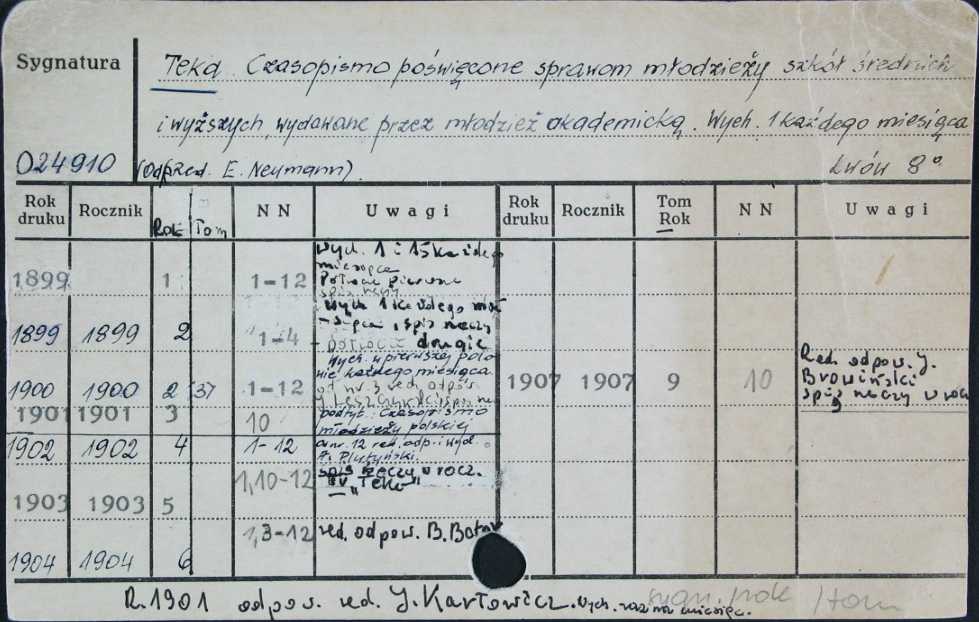 Sygnatura
Teka. Czasopismo poświęcone sprawom młodzieży szkół średnich
i wyższych wydawane przez młodzież akademicką. Wych. 1 każdego miesiąca
024910 (odp. red. E. Neumann). Lwów 8°
Rok druku Rocznik Rok Tom NN Uwagi Rok druku Rocznik Tom Rok NN Uwagi
wych. 1 i 15 każdego
miesiąca
1899 1 1-12 Półrocze pierwsze
spis rzeczy
wych 1 każdego mie
-siąca, spis rzeczy
1899 1899 2 1-4 - półrocze drugie
Wych. w pierwszej poło
wie każdego miesiąca
1900 1900 2 37 1-12 od nr. 3 red. odpow.
J. Leszczyński spis rzeczy
1907 1907 9 10 Red. odpow. J.
Browiński
spis rzeczy w rocz
9
1901 1901 3 10 podtyt: Czasopismo
młodzieży polskiej
1902 1902 4 1-12 od nr. 12 red. odp. i wyd.
A. Plutyński.
1903 1903 5 1,10-12 spis rzeczy w rocz.
IV "Teki"
1904 1904 6 1,3-12 red. odpow. B.
R. 1901 odpow. red. J. Karłowicz. Wych. raz na miesiąc.
sygn. /rok /tom